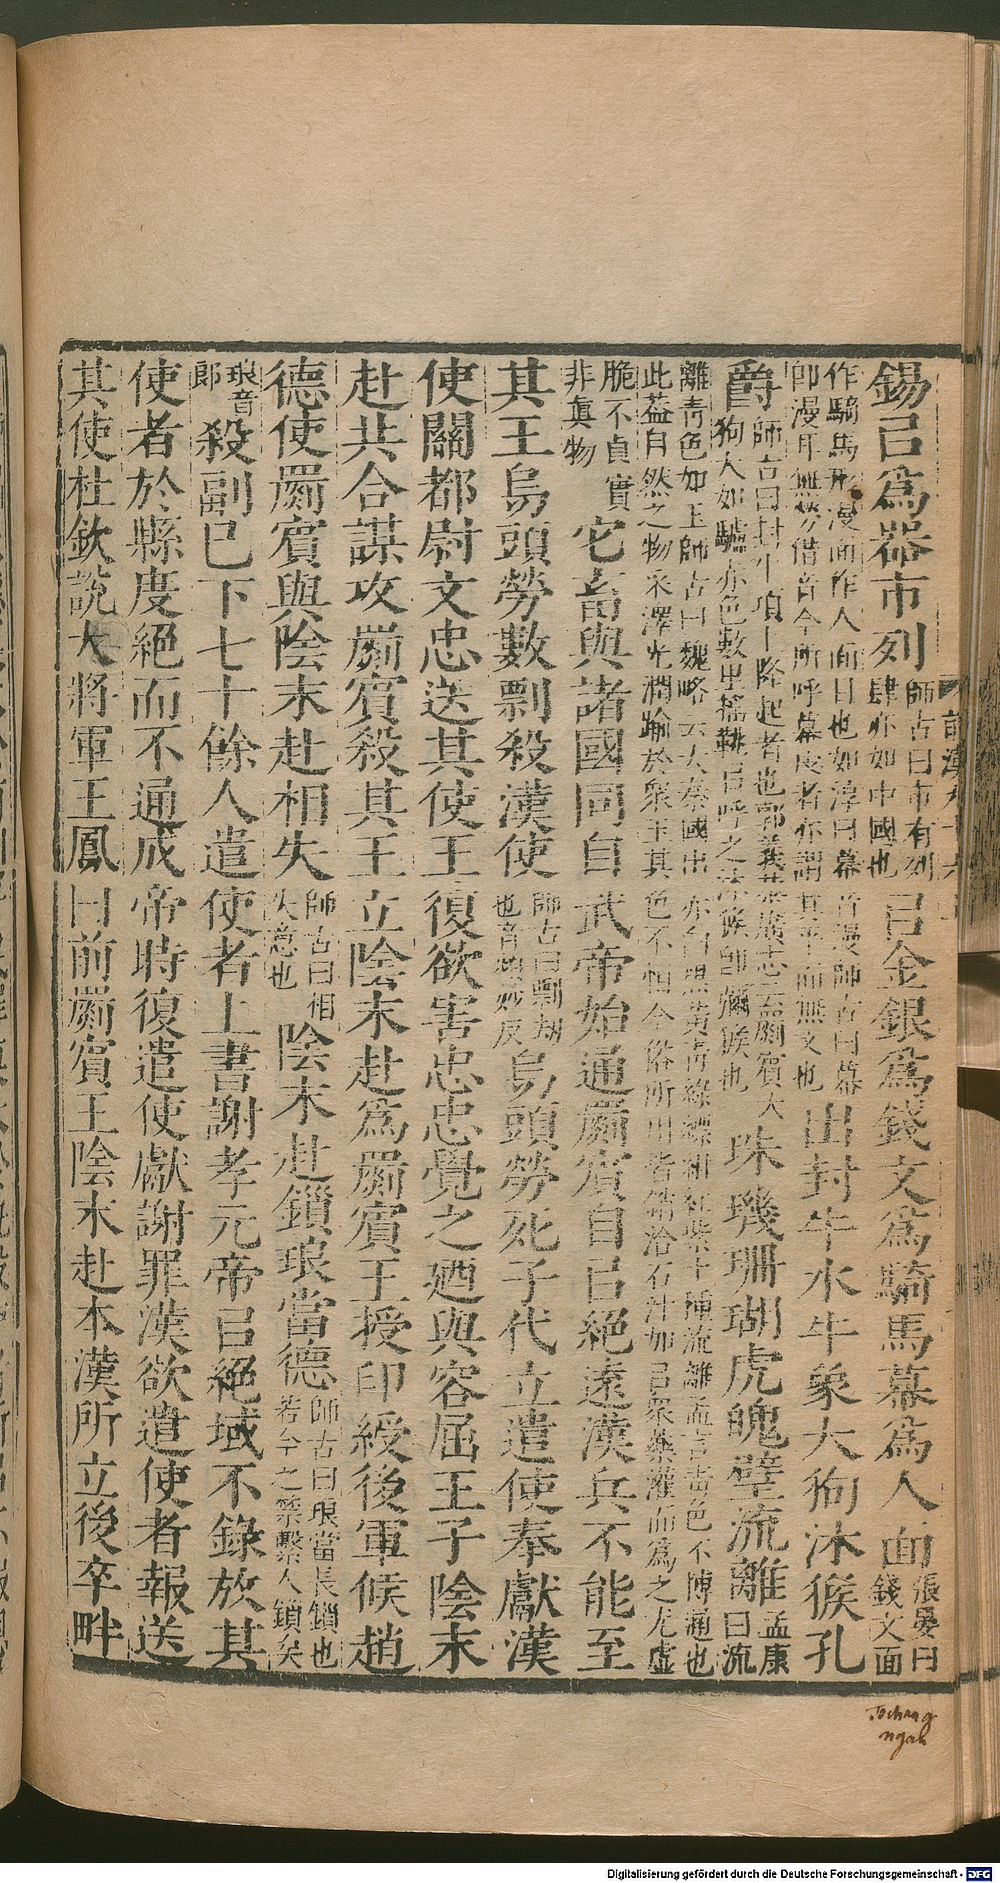 錫㠯爲器市列師古曰市有列肆亦如中國也㠯金銀爲錢文爲騎馬幕爲人面張晏曰錢文面
作騎馬形漫面作人面目也如淳曰幕音漫師古曰幕卽漫耳無勞借音今所呼幕皮者亦謂其平而無文也出封牛水牛象大狗沐猴孔
爵師古曰封牛項上隆起者也郭義恭廣志云罽賓大狗大如驢赤色數里搖鞉㠯呼之沐猴卽獼猴也珠璣珊瑚虎魄璧流離孟康曰流
離靑色如玉師古曰魏略云大秦國出赤白黑黃靑綠縹紺紅紫十種流離孟言靑色不博通也此蓋自然之物采澤光潤踰於衆玉其色不恒今俗所用皆銷冶石汁加㠯衆藥灌而爲之尤虛
脆不貞實非眞物它畜與諸國同自武帝始通罽賓自㠯絕遠漢兵不能至
其王烏頭勞數剽殺漢使師古曰剽劫也音頻妙反烏頭勞死子代立遣使奉獻漢
使關都尉文忠送其使王復欲害忠忠覺之廼與容屈王子陰末
赴共合謀攻罽賓殺其王立陰末赴爲罽賓王授印綬後軍候趙
德使罽賓與陰末赴相失師古曰相失意也陰末赴鎖琅當德師古曰琅當長鎖也若今之禁繫人鎖矣
琅音郎殺副已下七十餘人遣使者上書謝孝元帝㠯絕域不錄放其
使者於縣度絕而不通成帝時復遣使獻謝罪漢欲遣使者報送
其使杜欽說大將軍王鳳曰前罽賓王陰末赴本漢所立後卒畔
Digitalisierung gefördert durch die Deutsche Forschungsgemeinschaft - DFG